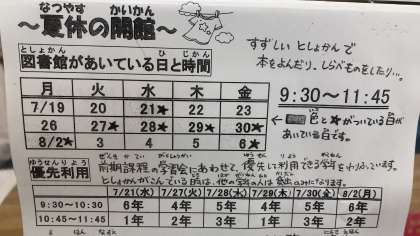 なつやす かいかん
～夏休の開館～
としょかん ひ じかん
図書館があいている日と時間
すずしい としょかんで
本をよんだり、しらべものをしたり…。
月 火 水 木 金
7/19 20 21★ 22 23
26 27★ 28★ 29★ 30★
8/2★ 3 4 5 6★
9:30～11:45
色と★がついている日が
あいている日です。
ゆうせんりよう
優先利用
前期課程の学習会にあわせて、優先して利用できる学年をわりふっています。
としょかんがこんでいる時は、他の学年の人は貸出のみになります。
7/21(水) 7/27(火) 7/28(水) 7/29(木) 7/30(金) 8/2(月)
9:30～10:30 6年 4年 5年 4年 5年 6年
10:45～11:45 1年 2年 3年 1年 3年 2年